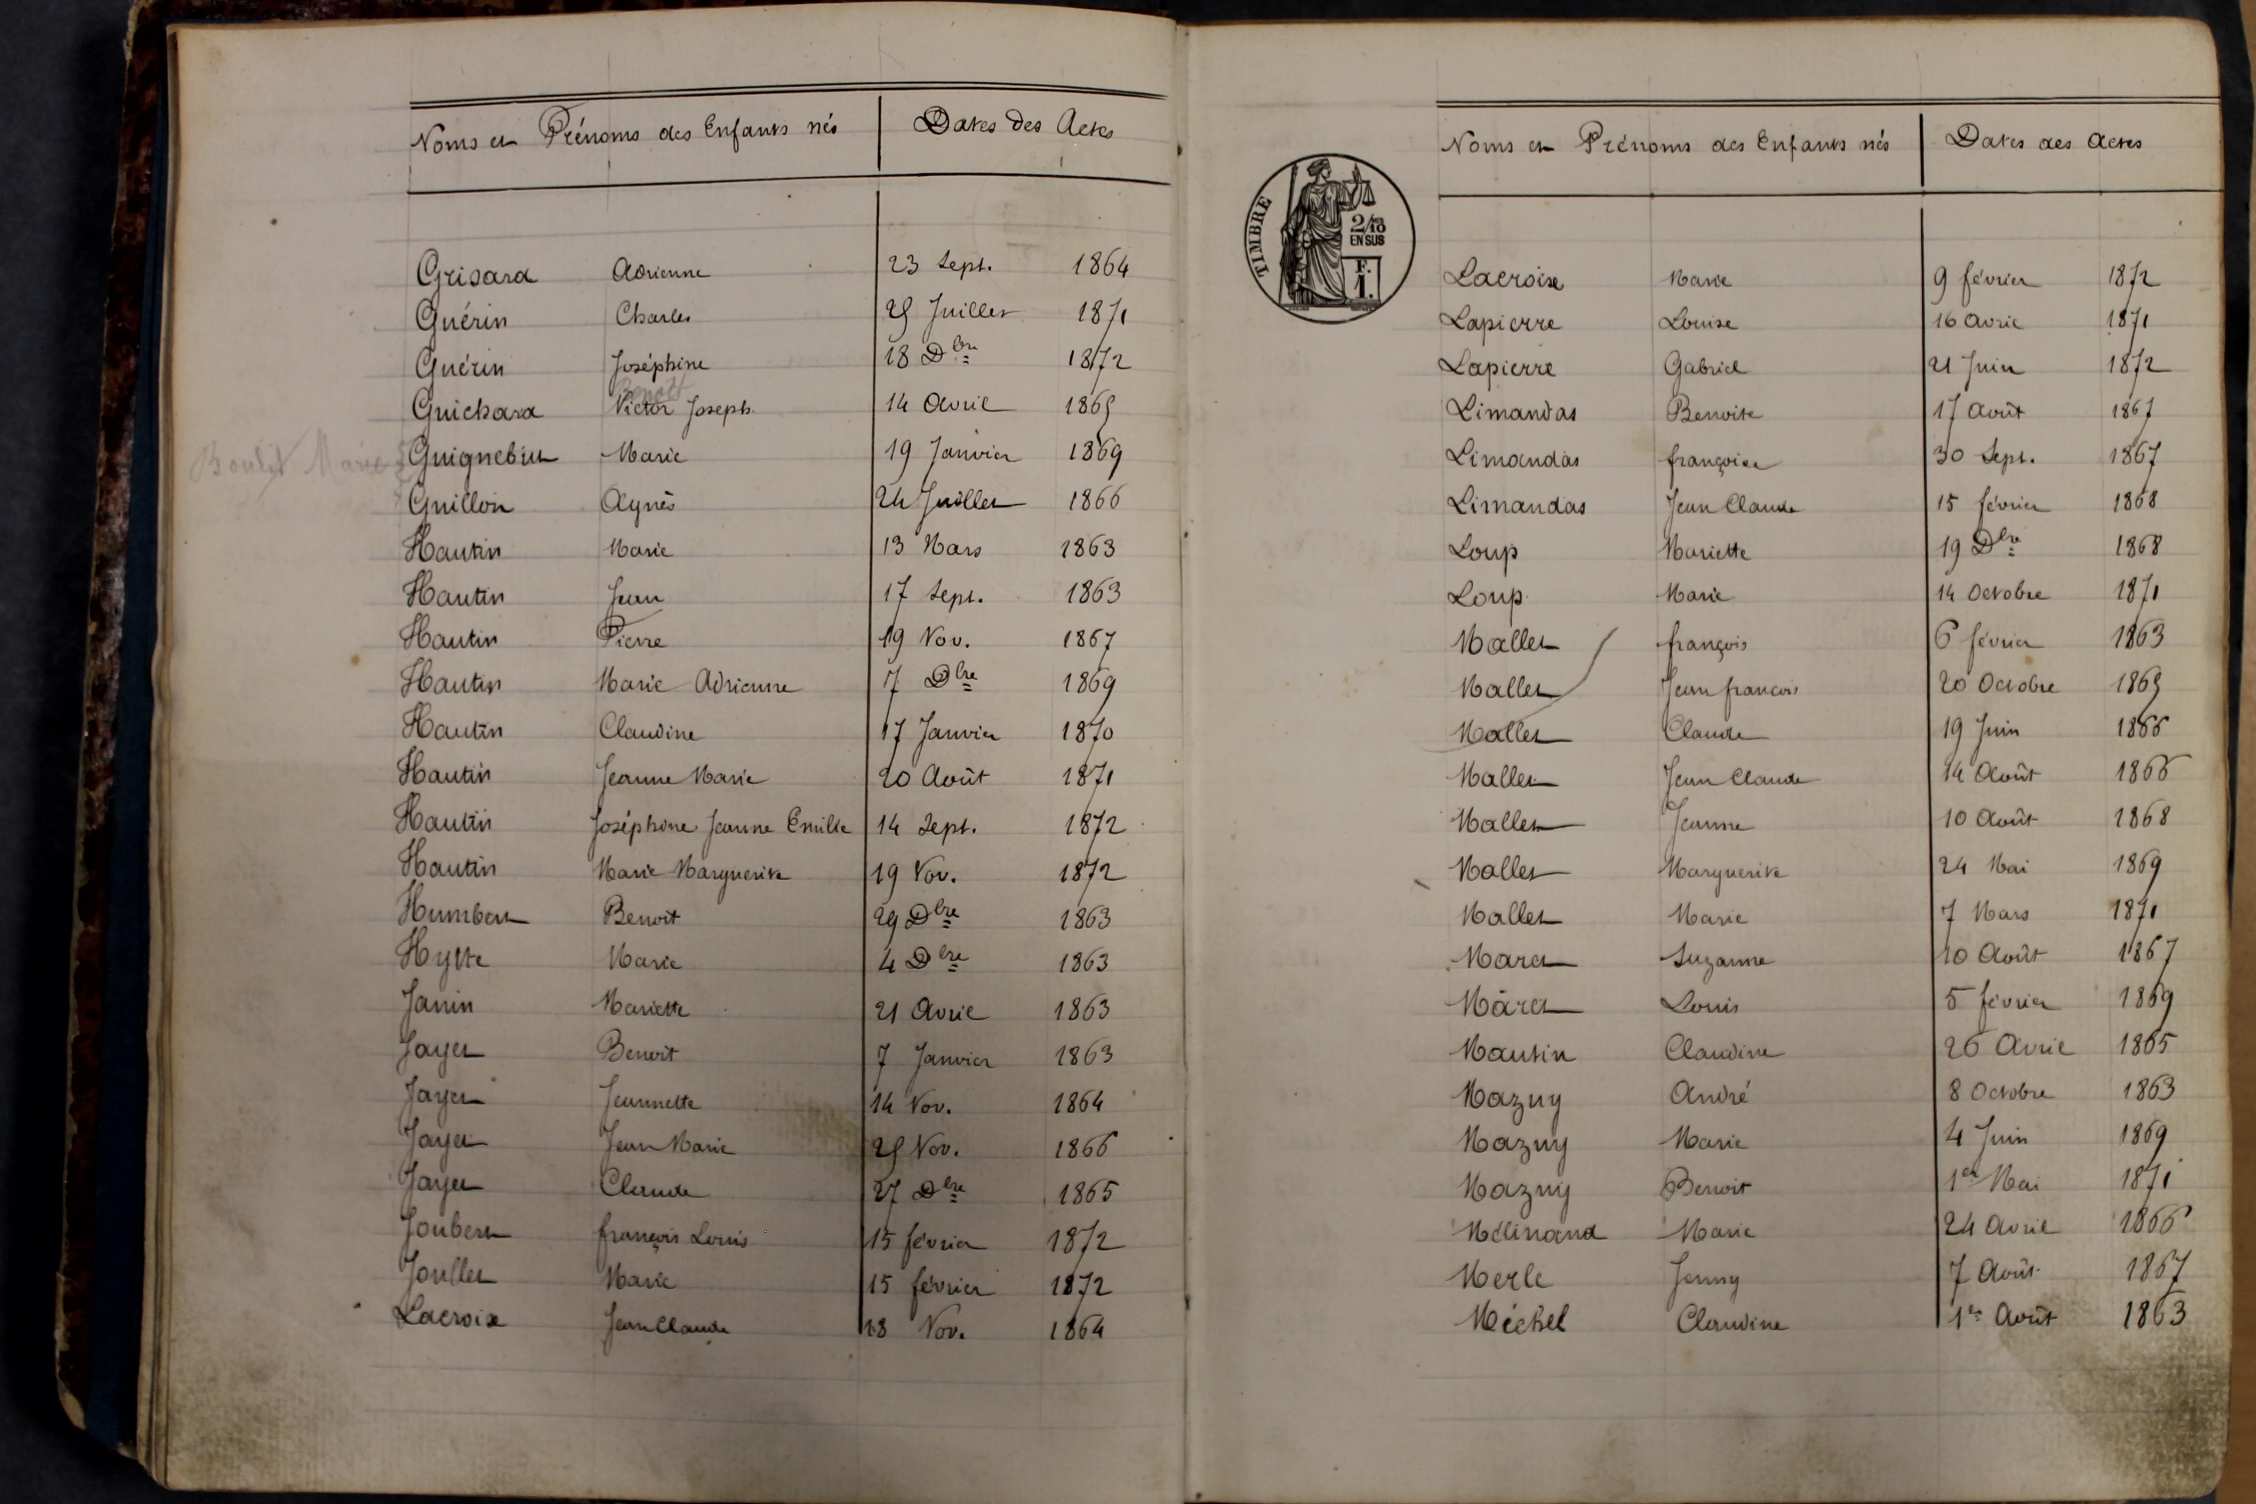 Noms et Prénoms des Enfants nés Dates des Actes
Grisard Adrienne 23 Sept. 1864
Guérin Charles 25 Juillet 1871
Guérin Joséphine 18 Dbre 1872
Benoit
Guichard Victor Joseph 14 Avril 1865
Marie Guignebert Marie 19 Janvier 1869
Guillon Agnès 24 Juillet 1866
Hautin Marie 13 Mars 1863
Hautin Jean 17 Sept. 1863
Hautin Pierre 19 Nov. 1867
Hautin Marie Adrienne 7 Dbre 1869
Hautin Claudine 17 Janvier 1870
Hautin Jeanne Marie 20 Août 1871
Hautin Joséphine Jeanne Emilie 14 Sept. 1872
Hautin Marie Marguerite 19 Nov. 1872
Humbert Benoit 29 Dbre 1863
Hytte Marie 4 Dbre 1863
Janin Mariette 21 Avril 1863
Jayet Benoit 7 Janvier 1863
Jayet Jeannette 14 Nov. 1864
Jayet Jean Marie 25 Nov. 1866
Jayet Claude 27 Dbre 1865
Joubert françois Louis 15 février 1872
Joullet Marie 15 février 1872
Lacroix Jean Claude 18 Nov. 1864
Noms et Prénoms des Enfants nés Dates des Actes
TIMBRE
2/10
EN SUS
F.
1.
Lacroix Marie 9 février 1872
Lapierre Louise 16 Avril 1871
Lapierre Gabriel 21 Juin 1872
Limandas Benoite 17 Août 1867
Limandas françoise 30 Sept. 1867
Limandas Jean Claude 15 février 1868
Loup Mariette 19 Dbre 1868
Loup Marie 14 Octobre 1871
Mallet françois 6 février 1863
Mallet Jean francois 20 Octobre 1865
Mallet Claude 19 Juin 1866
Mallet Jean Claude 14 Août 1866
Mallet Jeanne 10 Août 1868
Mallet Marguerite 24 Mai 1869
Mallet Marie 7 Mars 1871
Maret Suzanne 10 Août 1867
Maret Louis 5 février 1869
Mautin Claudine 26 Avril 1865
Mazuy André 8 Octobre 1863
Mazuy Marie 4 Juin 1869
Mazuy Benoit 1er Mai 1871
Mélinand Marie 24 Avril 1866
Merle Jenny 7 Août 1867
Michel Claudine 1er Août 1863